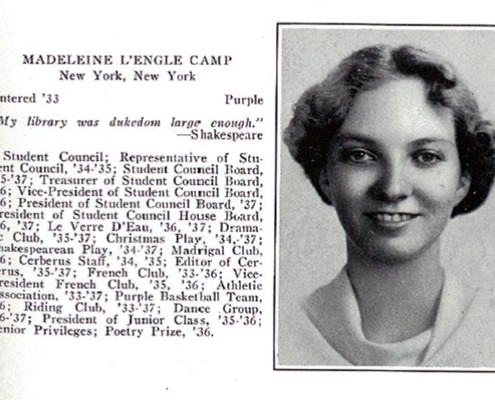 MADELEINE L'ENGLE CAMP
New York, New York
ntered '33 Purple
My library was dukedom large enough."
—Shakespeare
Student Council; Representative of Stu-
ent Council, '34-'35; Student Council Board,
5-'37; Treasurer of Student Council Board,
6; Vice-President of Student Council Board,
6; President of Student Council Board, '37;
resident of Student Council House Board,
6, '37; Le Verre D'Eau, '36, '37; Drama-
c Club, '35-'37; Christmas Play, '34,-'37;
hakespearean Play, '34-'37; Madrigal Club,
6; Cerberus Staff, '34, '35; Editor of Cer-
rus, '35-'37; French Club, '33-'36; Vice-
resident French Club, '35, '36; Athletic
ssociation, '33-'37; Purple Basketball Team,
6; Riding Club, '33-'37; Dance Group,
6-'37; President of Junior Class, '35-'36;
enior Privileges; Poetry Prize, '36.